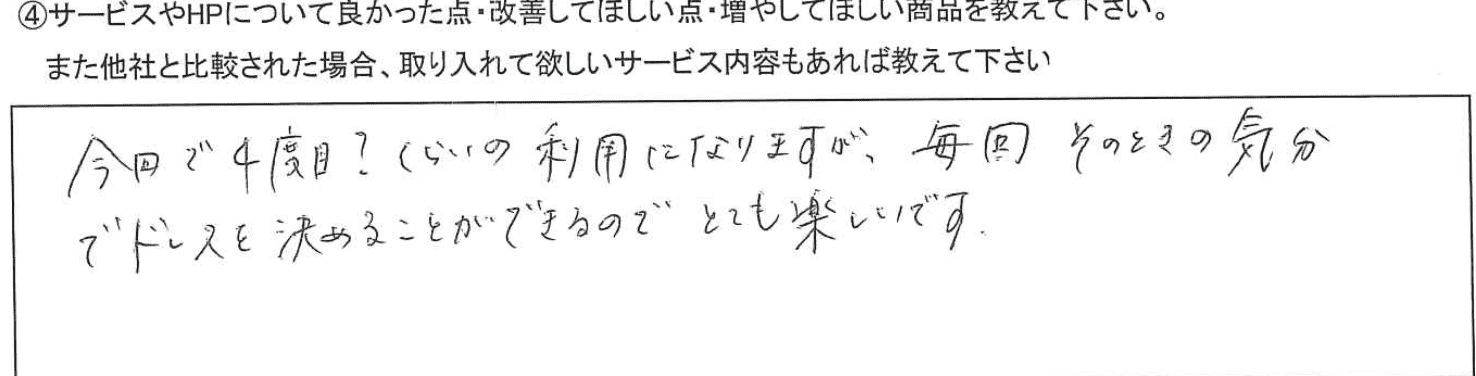 ④サービスやHPについて良かった点・改善してほしい点・増やしてほしい商品を教えて下さい。
また他社と比較された場合、取り入れて欲しいサービス内容もあれば教えて下さい
今回で4度目?くらいの利用になりますが、毎回そのときの気分
でドレスを決めることができるのでとても楽しいです.